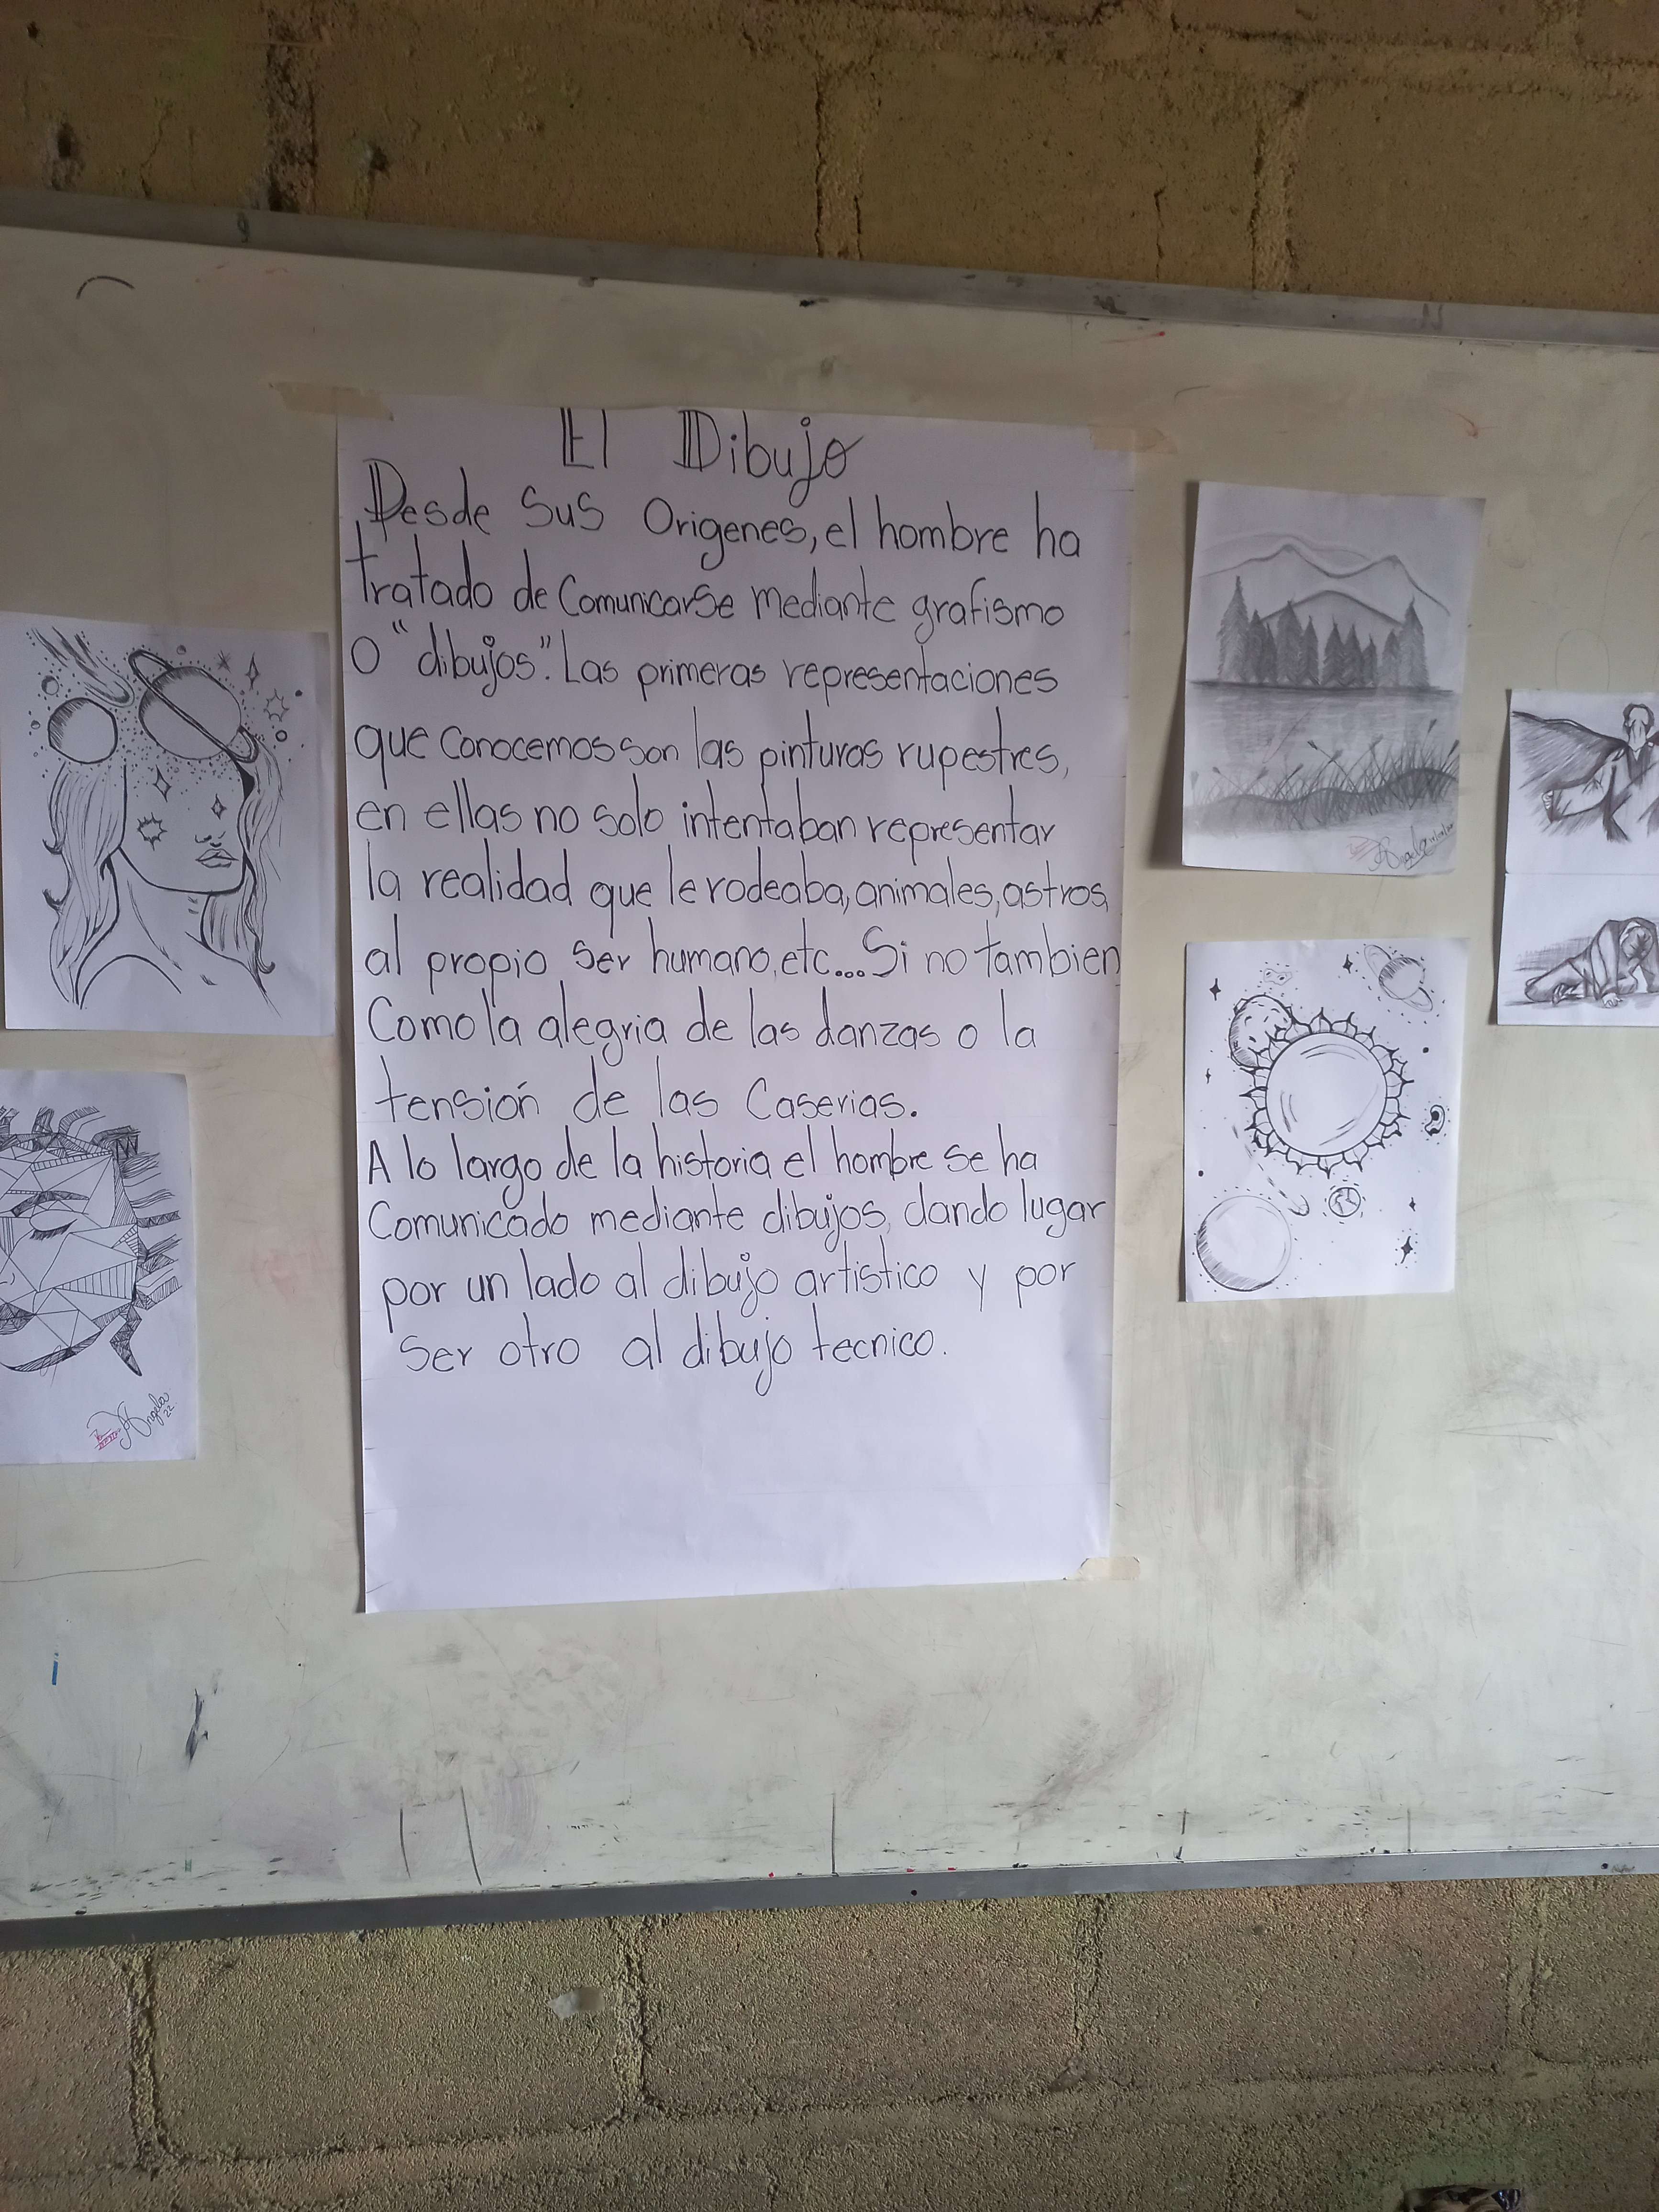 El Dibujo
Desde Sus Origenes, el hombre ha
tratado de Comunicarse mediante grafismo
o "dibujos". Las primeras representaciones
que conocemos son las pinturas rupestres,
en ellas no solo intentaban representar
la realidad que le rodeaba, animales, astros,
al propio ser humano, etc... Si no tambien
Como la alegria de las danzas o la
tensión de las Caserias.
A lo largo de la historia el hombre se ha
Comunicado mediante dibujos, dando lugar
por un lado al dibujo artistico y por
ser otro al dibujo tecnico.
Angela
Angela
22